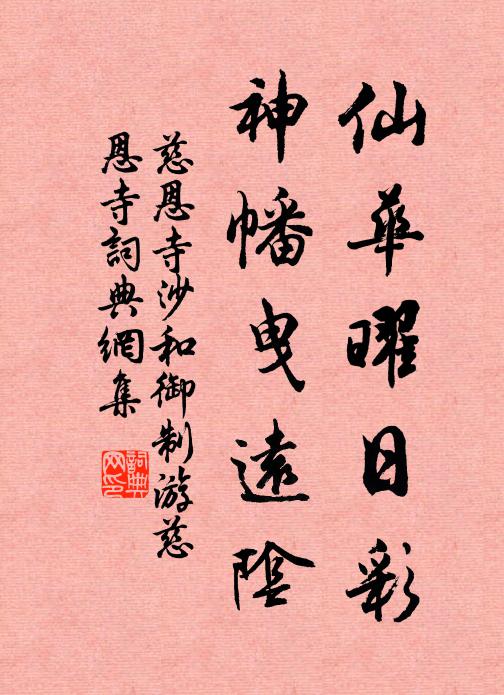 仙華曜日彩
神幡曳遠陰
慈恩寺沙和御制游慈
恩寺詞典網集
詞典網印